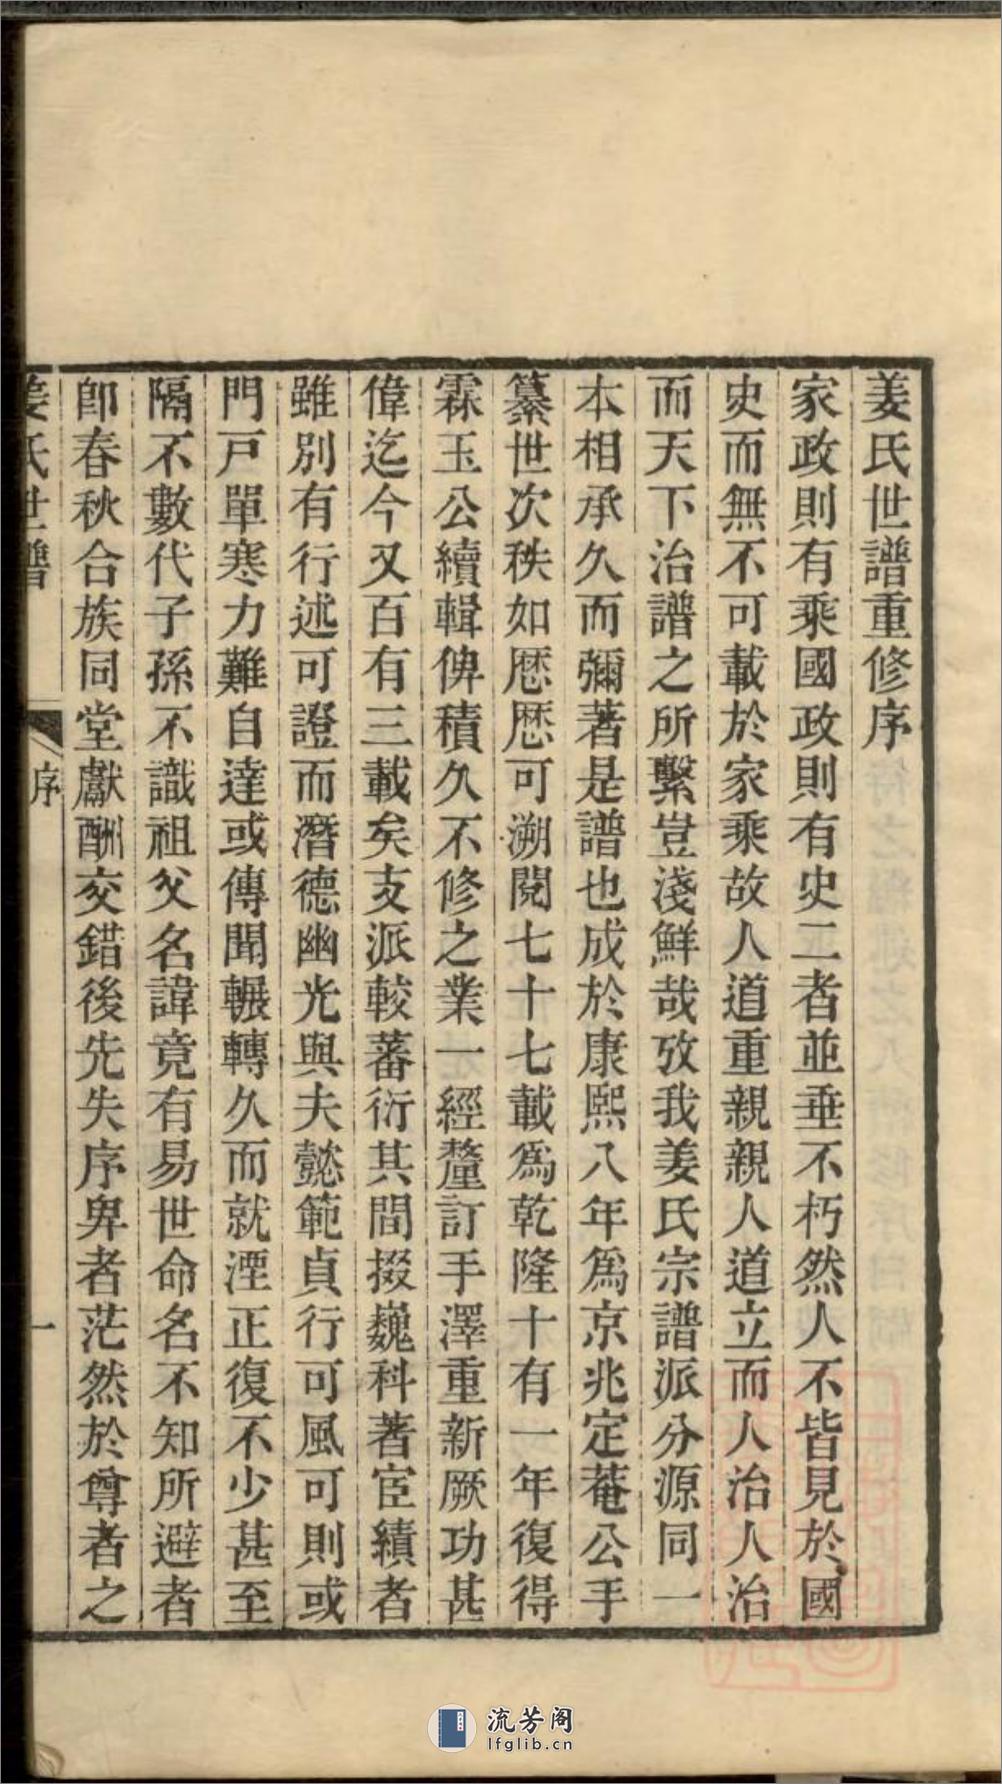 姜氏世譜重修序
家政則有乘國政則有史二者並垂不朽然人不皆見於國
史而無不可載於家乘故人道重親親人道立而人治人治
而天下治譜之所繫豈淺鮮哉攷我姜氏宗譜派分源同一
本相承久而彌著是譜也成於康熙八年爲京兆定菴公手
纂世次秩如歴歴可溯閱七十七載爲乾隆十有一年復得
霖玉公續輯俾積久不修之業一經釐訂手澤重新厥功甚
偉迄今又百有三載矣支派較蕃衍其間掇巍科著宦績者
雖別有行述可證而潛德幽光與夫懿範貞行可風可則或
門戸單寒力難自達或傳聞輾轉久而就湮正復不少甚至
隔不數代子孫不識祖父名諱竟有易世命名不知所避者
卽春秋合族同堂獻酬交錯後先失序卑者茫然於尊者之
姜氏世譜
序
一
流芳阁
lfglib.cn